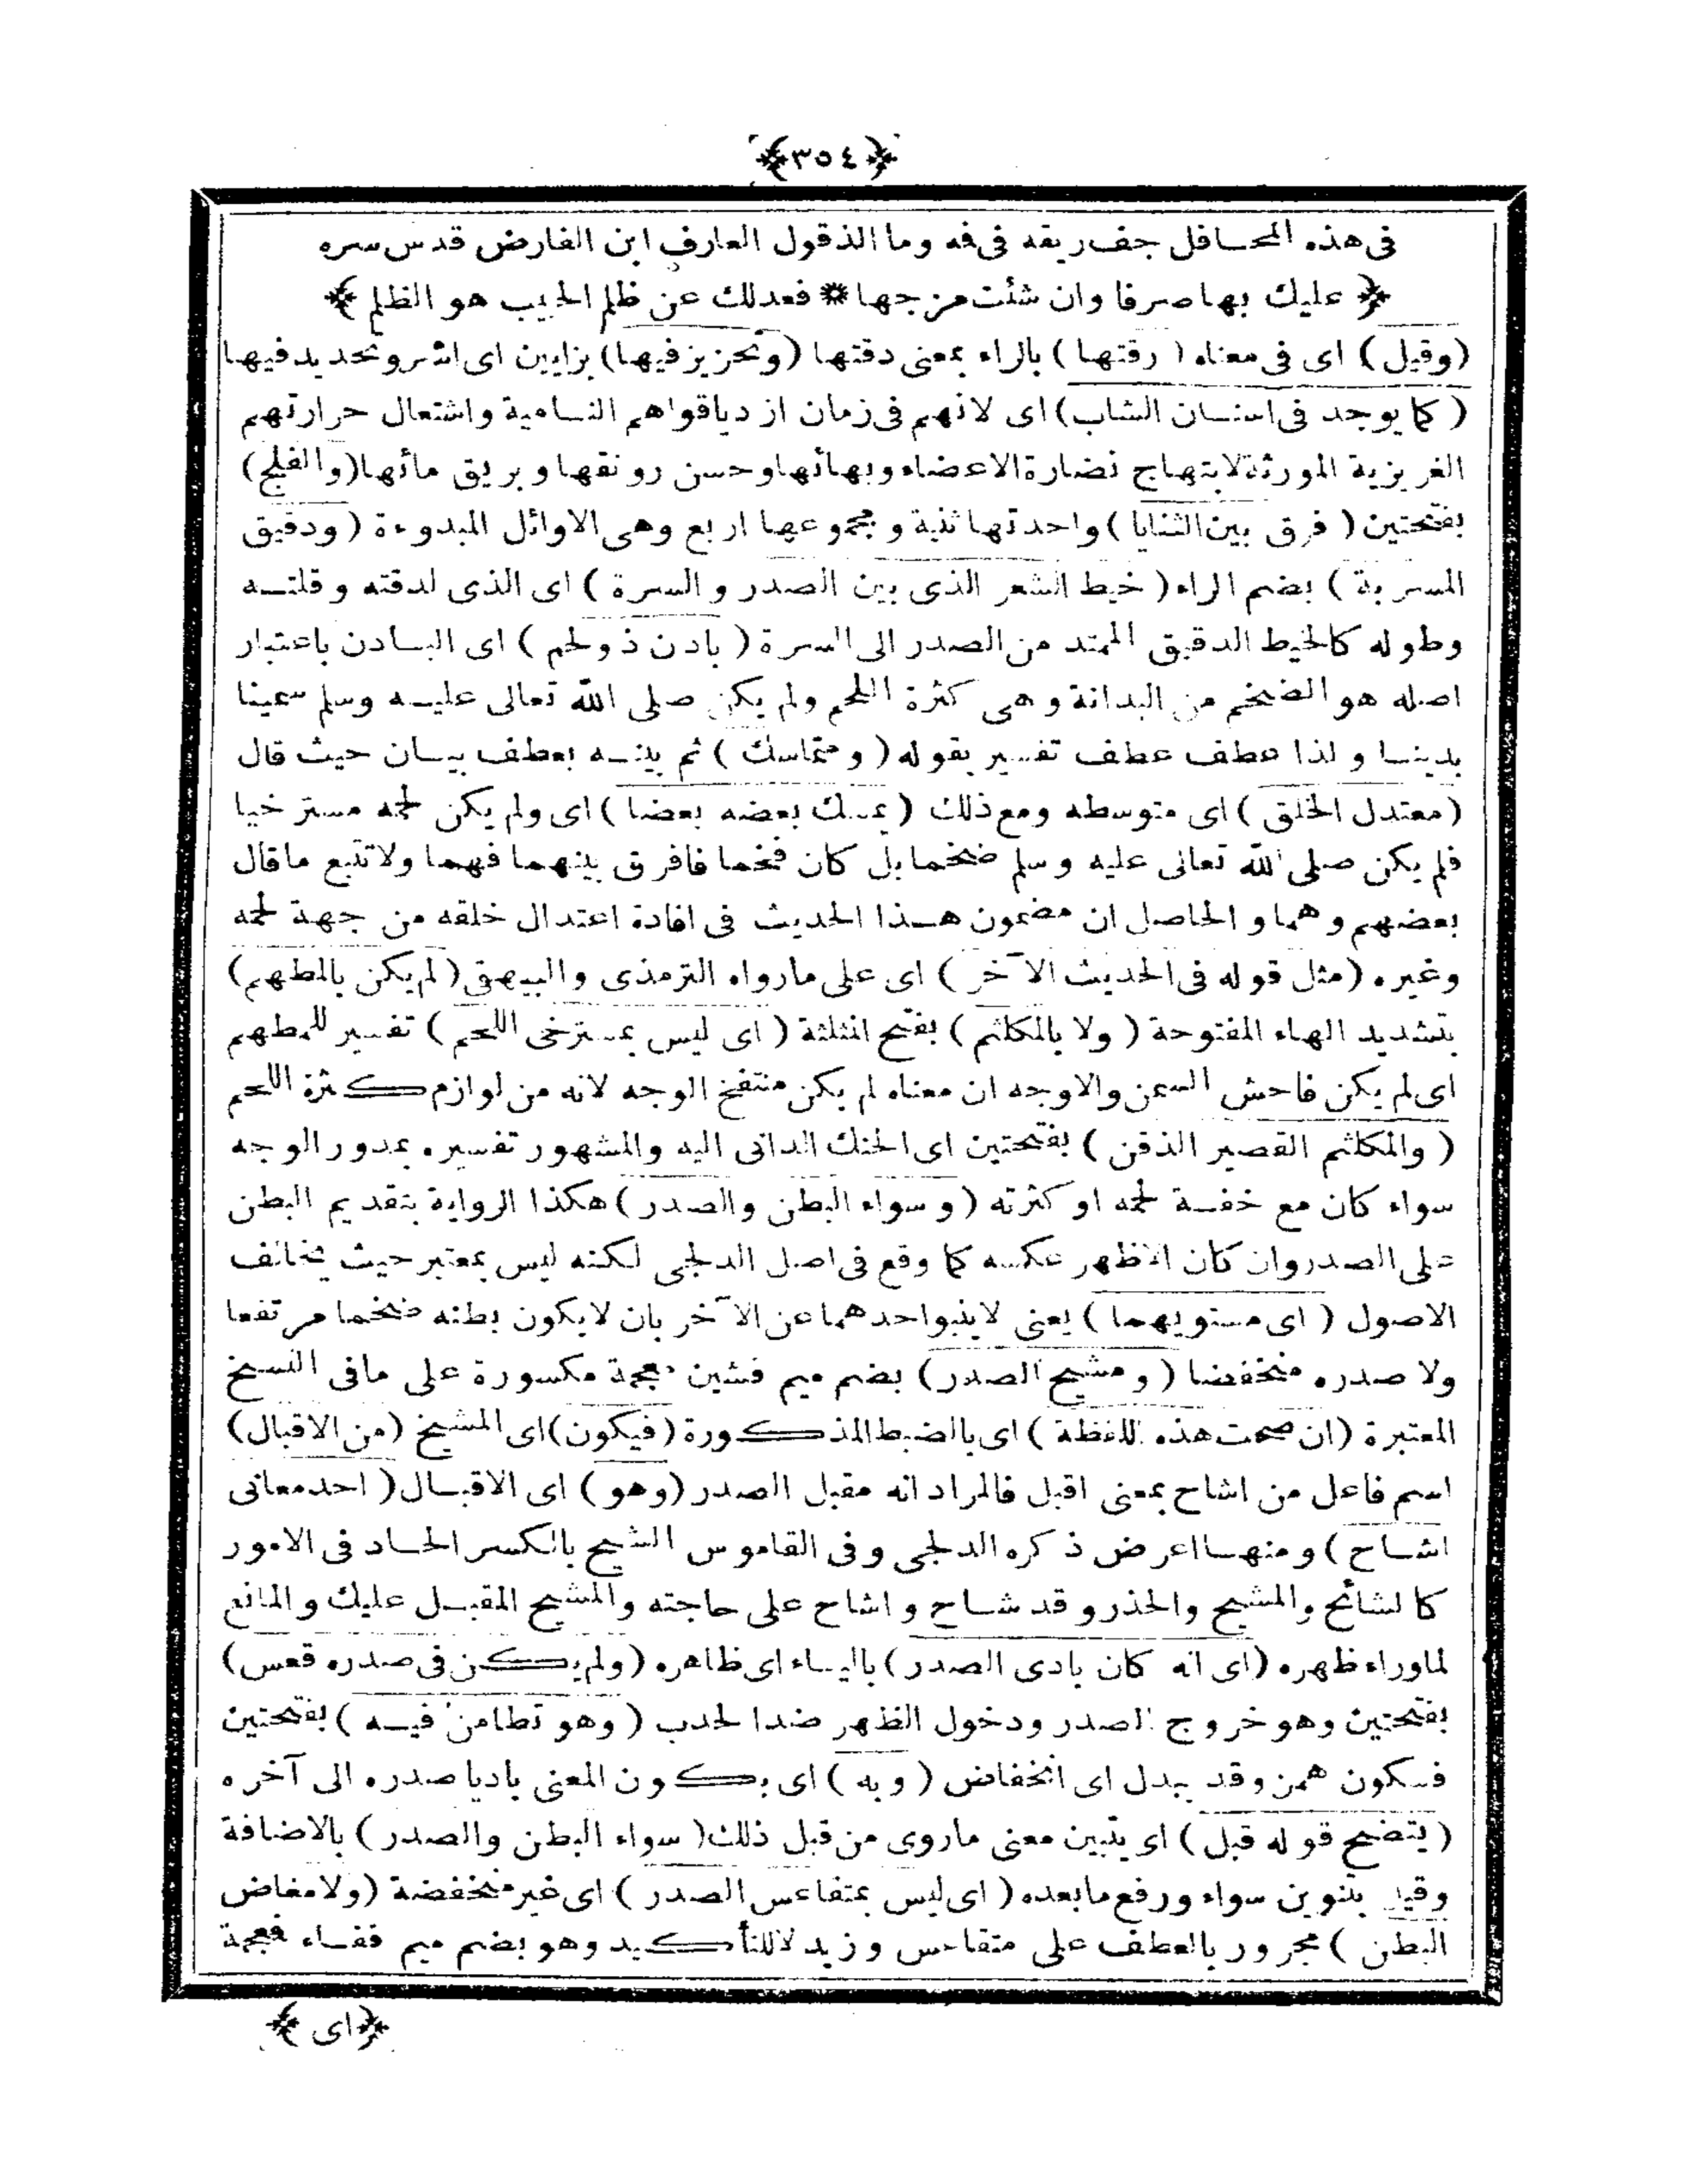 ﴿٣٥٤﴾
فى هذه المحافل جف ريقه فى فه وما الذ قول العارف ابن الفارض قدس سره
﴿ عليك بها صرفا وان شئت مزجها * فعدلك عن ظلم الحبيب هو الظلم ﴾
(وقيل) اى فى معناه ( رقتها ) بالراء بمعنى دقتها (وتحزيز فيها) بزايين اى اشر وتحديد فيها
( كما يوجد فى اسنان الشاب) اى لانهم فى زمان ازدياد قواهم النامية واشتعال حرارتهم
الغريزية المورثة لابتهاج نضارة الاعضاء وبهائها وحسن رونقها وبريق مائها (والفلج)
بفتحتين ( فرق بين الثنايا ) واحدتها ثنية ومجموعها اربع وهى الاوائل المبدوءة ( ودقيق
المسربة ) بضم الراء ( خيط الشعر الذى بين الصدر والسرة ) اى الذى لدقته وقلته
وطوله كالخيط الدقيق الممتد من الصدر الى السرة ( بادن ذولحم ) اى البادن باعتبار
اصله هو الضخم من البدانة وهى كثرة اللحم ولم يكن صلى الله تعالى عليه وسلم سمينا
بدينا ولذا عطف عطف تفسير بقوله ( ومتماسك ) ثم بينه بعطف بيان حيث قال
(معتدل الخلق ) اى متوسطه ومع ذلك ( يمسك بعضه بعضا ) اى ولم يكن لحمه مسترخيا
فلم يكن صلى الله تعالى عليه وسلم ضخما بل كان فخما فافرق بينهما فهما ولا تتبع ما قال
بعضهم وهما والحاصل ان مضمون هذا الحديث فى افادة اعتدال خلقه من جهة لحمه
وغيره (مثل قوله فى الحديث الآخر ) اى على ما رواه الترمذى والبيهقى (لم يكن بالمطهم)
بتشديد الهاء المفتوحة ( ولا بالمكلثم ) بفتح المثلثة ( اى ليس بمسترخى اللحم ) تفسير للمطهم
اى لم يكن فاحش السمن والاوجه ان معناه لم يكن منتفخ الوجه لانه من لوازم كثرة اللحم
( والمكلثم القصير الذقن ) بفتحتين اى الحنك الدانى اليه والمشهور تفسيره بمدور الوجه
سواء كان مع خفة لحمه او كثرته ( وسواء البطن والصدر ) هكذا الرواية بتقديم البطن
على الصدر وان كان الاظهر عكسه كما وقع فى اصل الدلجى لكنه ليس بمعتبر حيث يخالف
الاصول ( اى مستويهما ) يعنى لا ينبو احدهما عن الآخر بان لا يكون بطنه ضخما مرتفعا
ولا صدره منخفضا ( ومشيح الصدر ) بضم ميم فشين معجمة مكسورة على ما فى النسخ
المعتبرة (ان صحت هذه اللفظة ) اى بالضبط المذكورة (فيكون) اى المشيخ (من الاقبال)
اسم فاعل من اشاح بمعنى اقبل فالمراد انه مقبل الصدر (وهو ) اى الاقبال ( احد معانى
اشاح ) ومنها اعرض ذكره الدلجى وفى القاموس الشيح بالكسر الحاد فى الامور
كالشائح والمشيح والحذر وقد شاح واشاح على حاجته والمشيح المقبل عليك والمانع
لما وراء ظهره (اى انه كان بادى الصدر ) بالياء اى ظاهره (ولم يكن فى صدره قعس)
بفتحتين وهو خروج الصدر ودخول الظهر ضد الحدب ( وهو تطامن فيه ) بفتحتين
فسكون همز وقد يبدل اى انخفاض ( وبه ) اى بكون المعنى باديا صدره الى آخره
( يتضح قوله قبل ) اى يتبين معنى ما روى من قبل ذلك ( سواء البطن والصدر ) بالاضافة
وقيد بتنوين سواء ورفع ما بعده ( اى ليس بمتقاعس الصدر ) اى غير منخفضة (ولا مفاض
البطن ) مجرور بالعطف على متقاعس وزيد لا للتأكيد وهو بضم ميم ففاء فمعجمة
﴿ اى ﴾